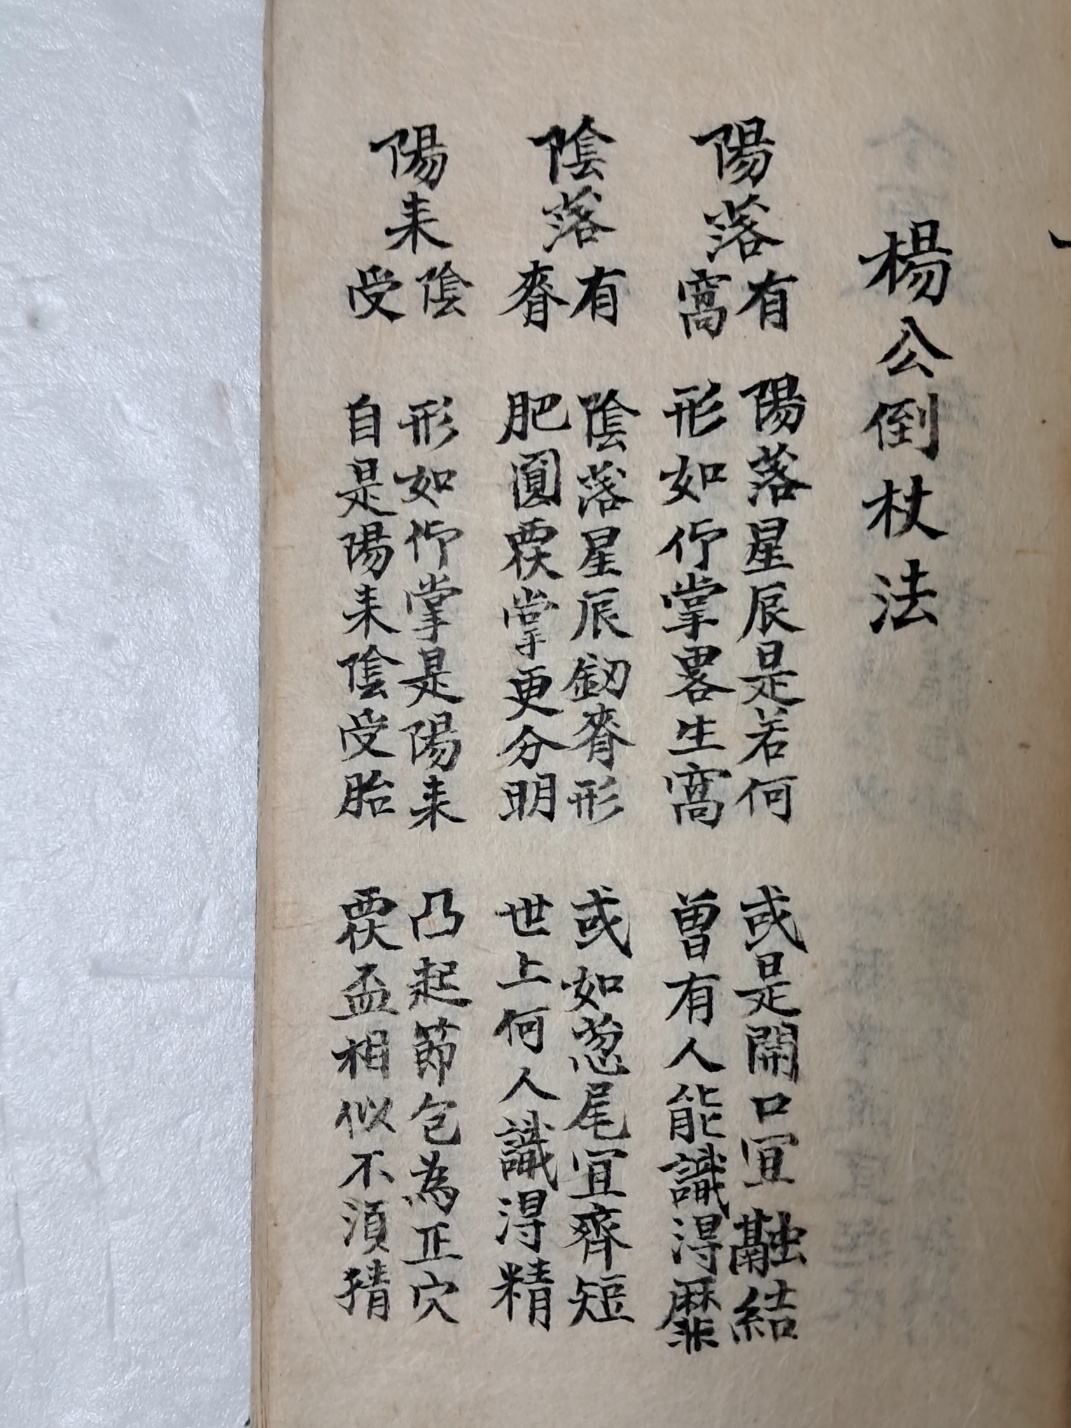 楊公倒杖法
陽落有窩
陽落星辰是若何
形如仰掌畧生窩
或是開口宜融結
曾有人能識得靡
陰落有脊
陰落星辰劒脊形
肥圓覆掌更分明
或如葱尾宜齊短
世上何人識得精
陽来陰受
形如仰掌是陽来
自是陽来陰受胎
凸起節包為正穴
覆盃相似不須猜